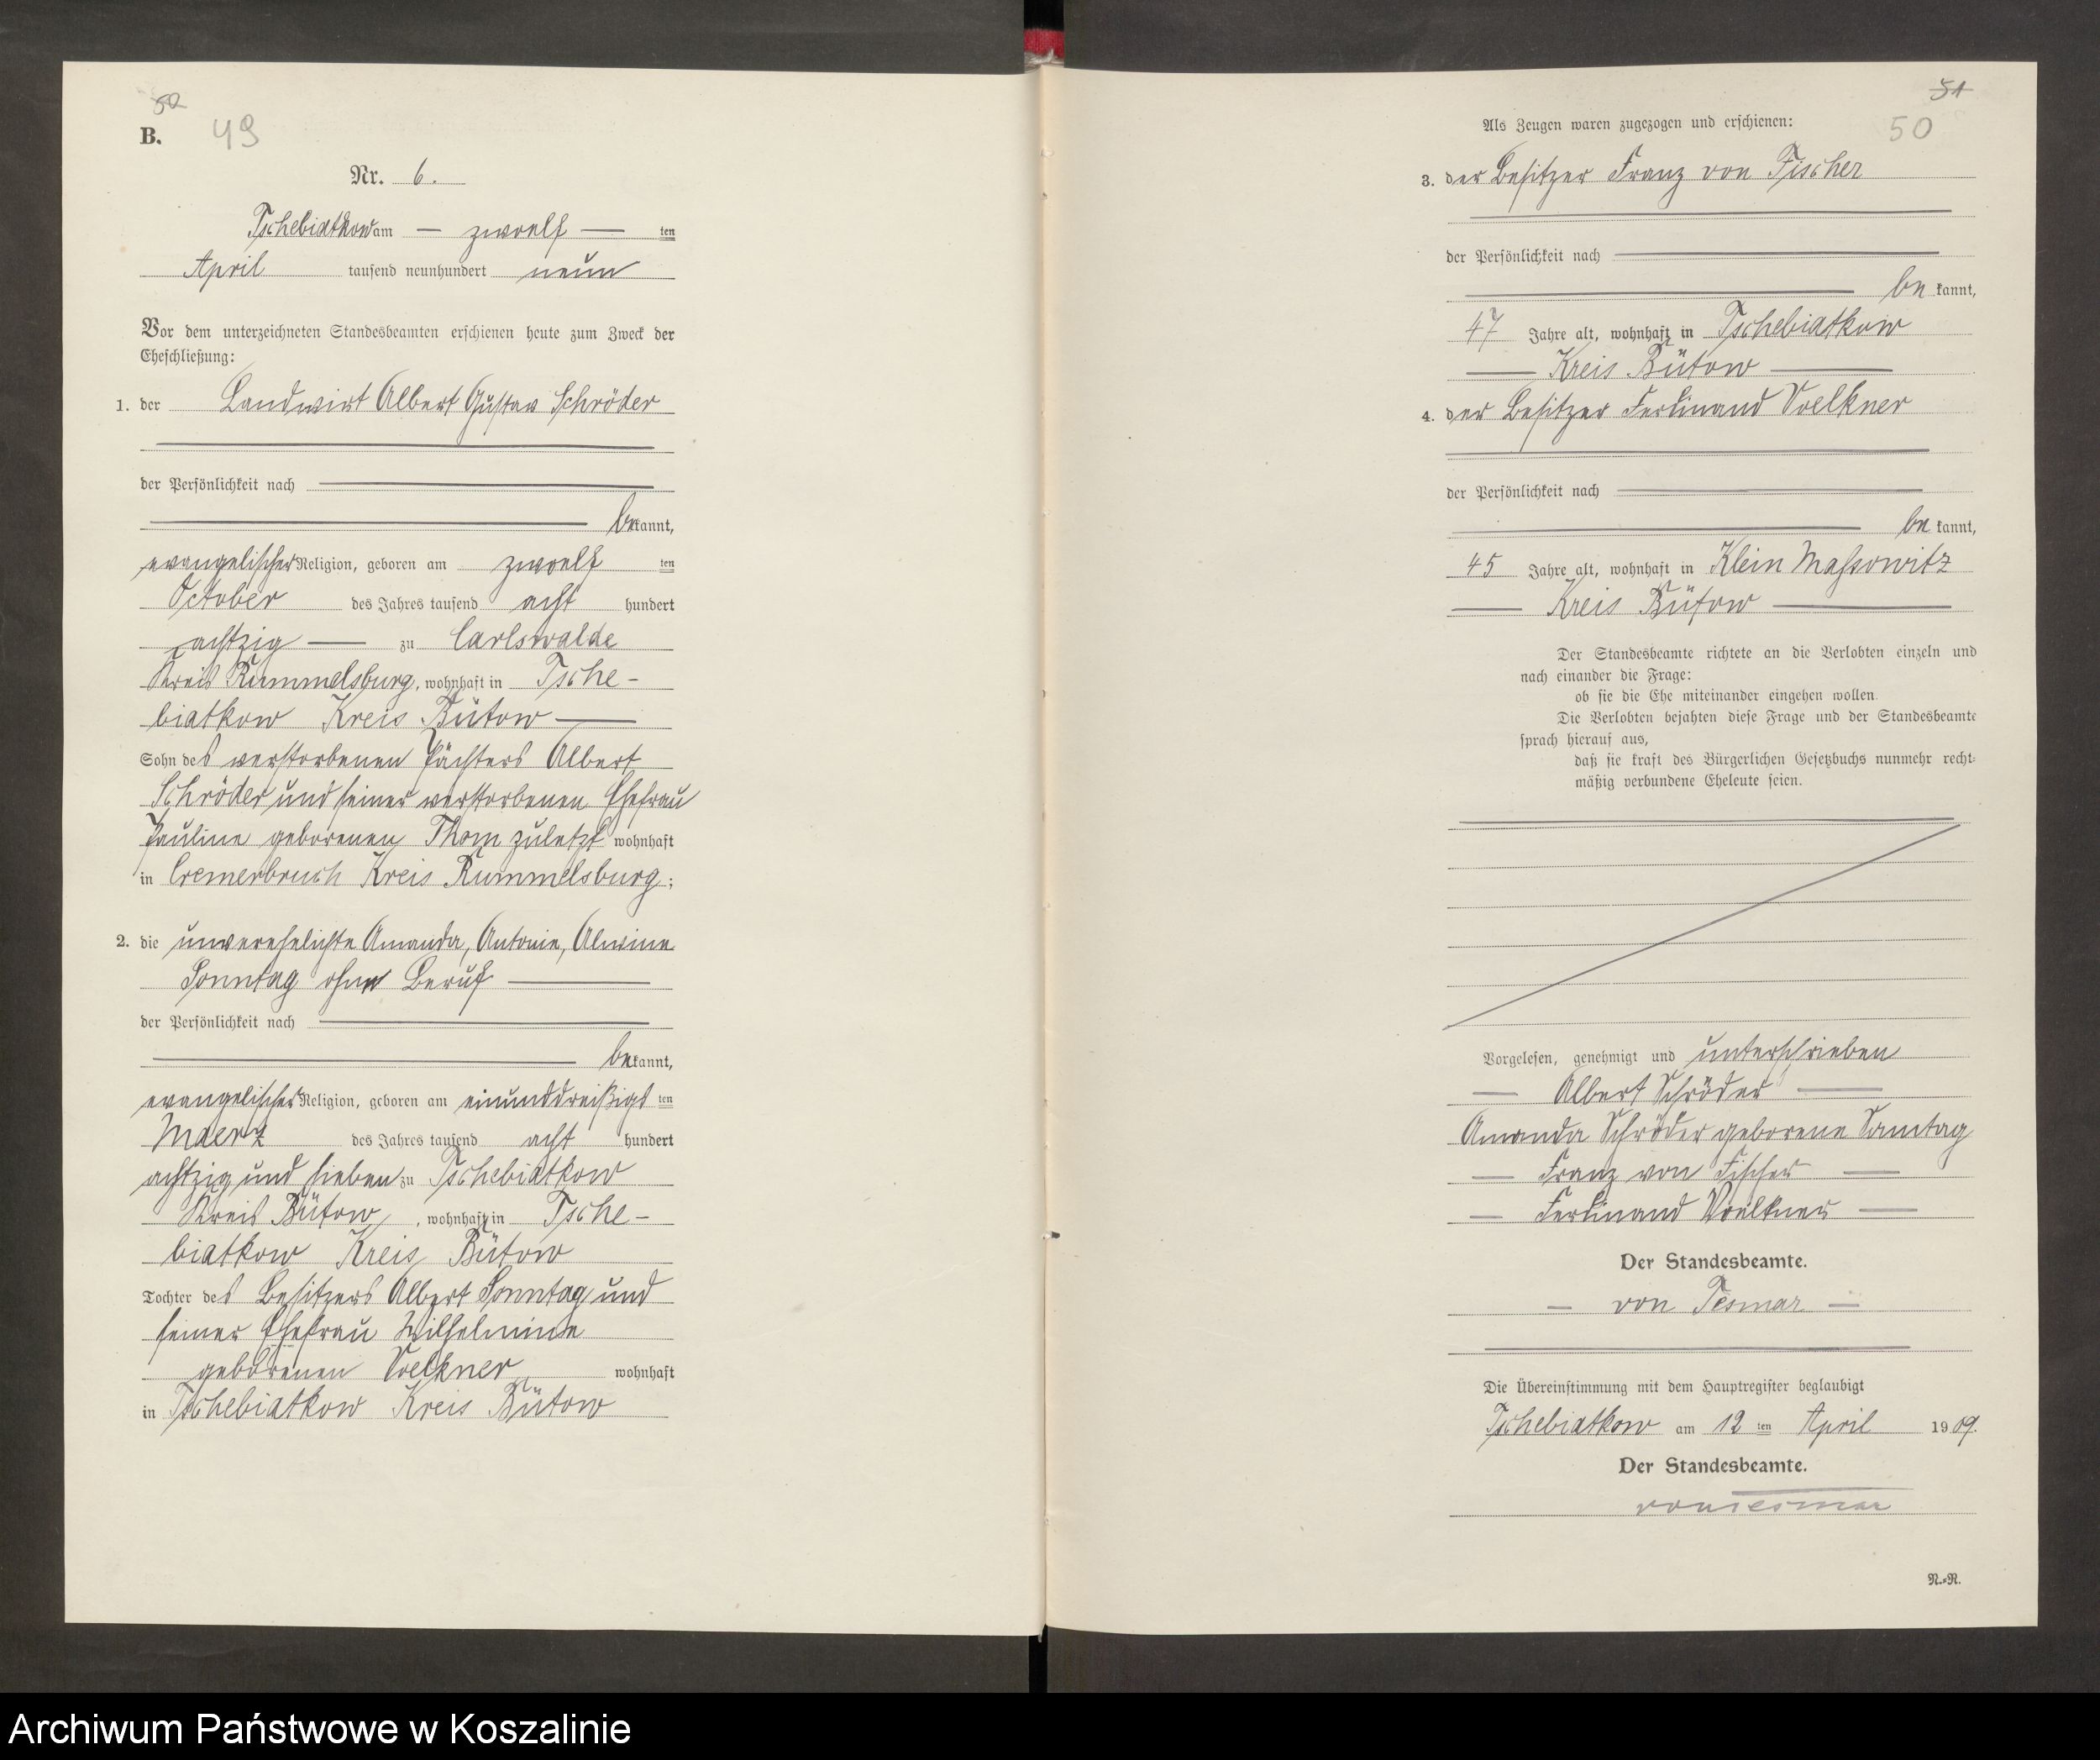 50
B. 49
Nr. 6.
Tschebiatkow am — zwoelf — ten
April tausend neunhundert neun
Vor dem unterzeichneten Standesbeamten erschienen heute zum Zweck der
Eheschließung:
1. der Landwirt Albert Gustav Schröder
der Persönlichkeit nach
bekannt,
evangelischer Religion, geboren am zwoelf ten
October des Jahres tausend acht hundert
achtzig — zu Carlswalde
Kreis Rummelsburg, wohnhaft in Tsche-
biatkow Kreis Bütow —
Sohn des verstorbenen Pächters Albert
Schröder und seiner verstorbenen Ehefrau
Pauline geborenen Thom zuletzt wohnhaft
in Cremerbruch Kreis Rummelsburg;
2. die unverehelichte Amanda, Antonie, Alwine
Sonntag ohne Beruf —
der Persönlichkeit nach
bekannt,
evangelischer Religion, geboren am einunddreißigs ten
Maerz des Jahres tausend acht hundert
achtzig und sieben zu Tschebiatkow
Kreis Bütow, wohnhaft in Tsche-
biatkow Kreis Bütow
Tochter des Besitzers Albert Sonntag und
seiner Ehefrau Wilhelmine
geborenen Voelkner wohnhaft
in Tschebiatkow Kreis Bütow
51
Als Zeugen waren zugezogen und erschienen: 50
3. der Besitzer Franz von Fischer
der Persönlichkeit nach
be kannt,
47 Jahre alt, wohnhaft in Tschebiatkow
— Kreis Bütow —
4. der Besitzer Ferdinand Voelkner
der Persönlichkeit nach
be kannt,
45 Jahre alt, wohnhaft in Klein Massowitz
— Kreis Bütow —
Der Standesbeamte richtete an die Verlobten einzeln und
nach einander die Frage:
ob sie die Ehe miteinander eingehen wollen.
Die Verlobten bejahten diese Frage und der Standesbeamte
sprach hierauf aus,
daß sie kraft des Bürgerlichen Gesetzbuchs nunmehr recht-
mäßig verbundene Eheleute seien.
Vorgelesen, genehmigt und unterschrieben
— Albert Schröder —
Amanda Schröder geborene Sonntag
— Franz von Fischer —
— Ferdinand Voelkner —
Der Standesbeamte.
— von Tesmar —
Die Übereinstimmung mit dem Hauptregister beglaubigt
Tschebiatkow am 12 ten April 1909.
Der Standesbeamte.
von Tesmar
N.-N.
Archiwum Państwowe w Koszalinie